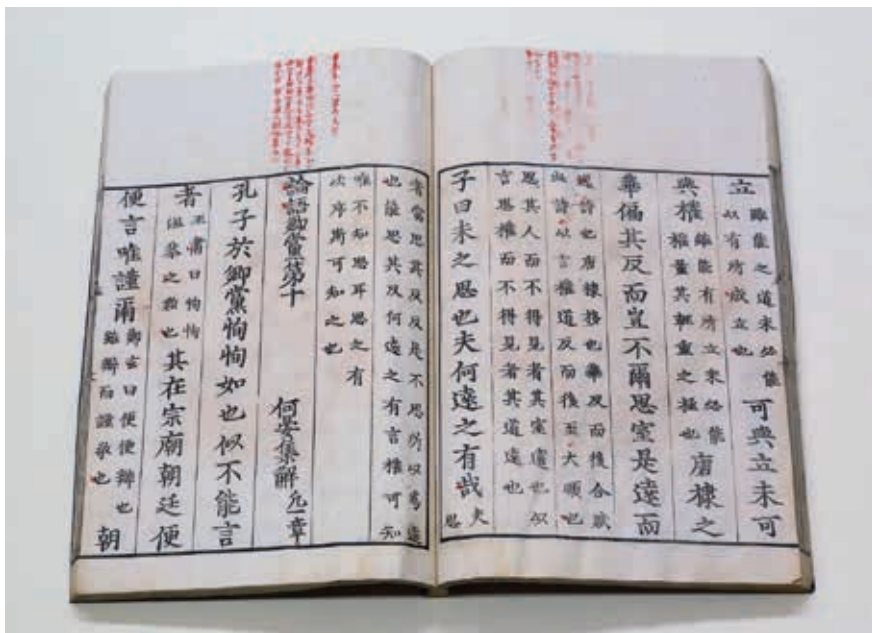 立 雖能之道未必能 以有所成立也 可與立未可
與權 雖能有所立未必能 權量其輕重之極也 唐棣之
華偏其反而豈不爾思室是遠而
逸詩也唐棣栘也華反而後合賦
此詩以言權道反而後至大順也
思其人而不得見者其室遠也以
言思權而不得見者其道遠也
子曰未之思也夫何遠之有哉 夫思
者當思其反反是不思所以為遠
也能思其反何遠之有言權可知
唯不知思耳思之有
次序斯可知之也
論語鄉黨第十 何晏集解 凡一章
孔子於鄉黨恂恂如也似不能言
者 王肅曰恂恂 溫恭之貌也 其在宗廟朝廷便
便言唯謹爾 鄭玄曰便便辯也 雖辯而謹敬也 朝